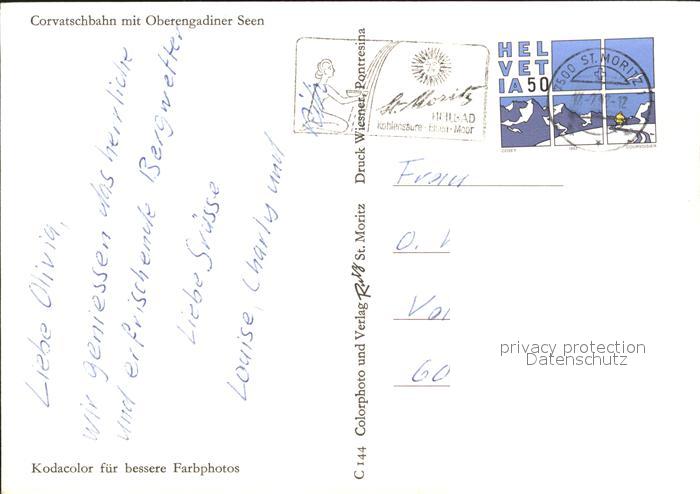 Corvatschbahn mit Oberengadiner Seen
Liebe Olivia,
wir geniessen das herrliche
und erfrischende Bergwetter
Liebe Grüsse
Louise, Charly und
Kodacolor für bessere Farbphotos
C 144 Colorphoto und Verlag Rutz St. Moritz Druck Wiesner, Pontresina
St. Moritz
HEILBAD
Kohlensäure-Eisen-Moor
HEL
VET
IA 50
COURVOISIER
7500 ST. MORITZ
Frau
O.
60
privacy protection
Datenschutz